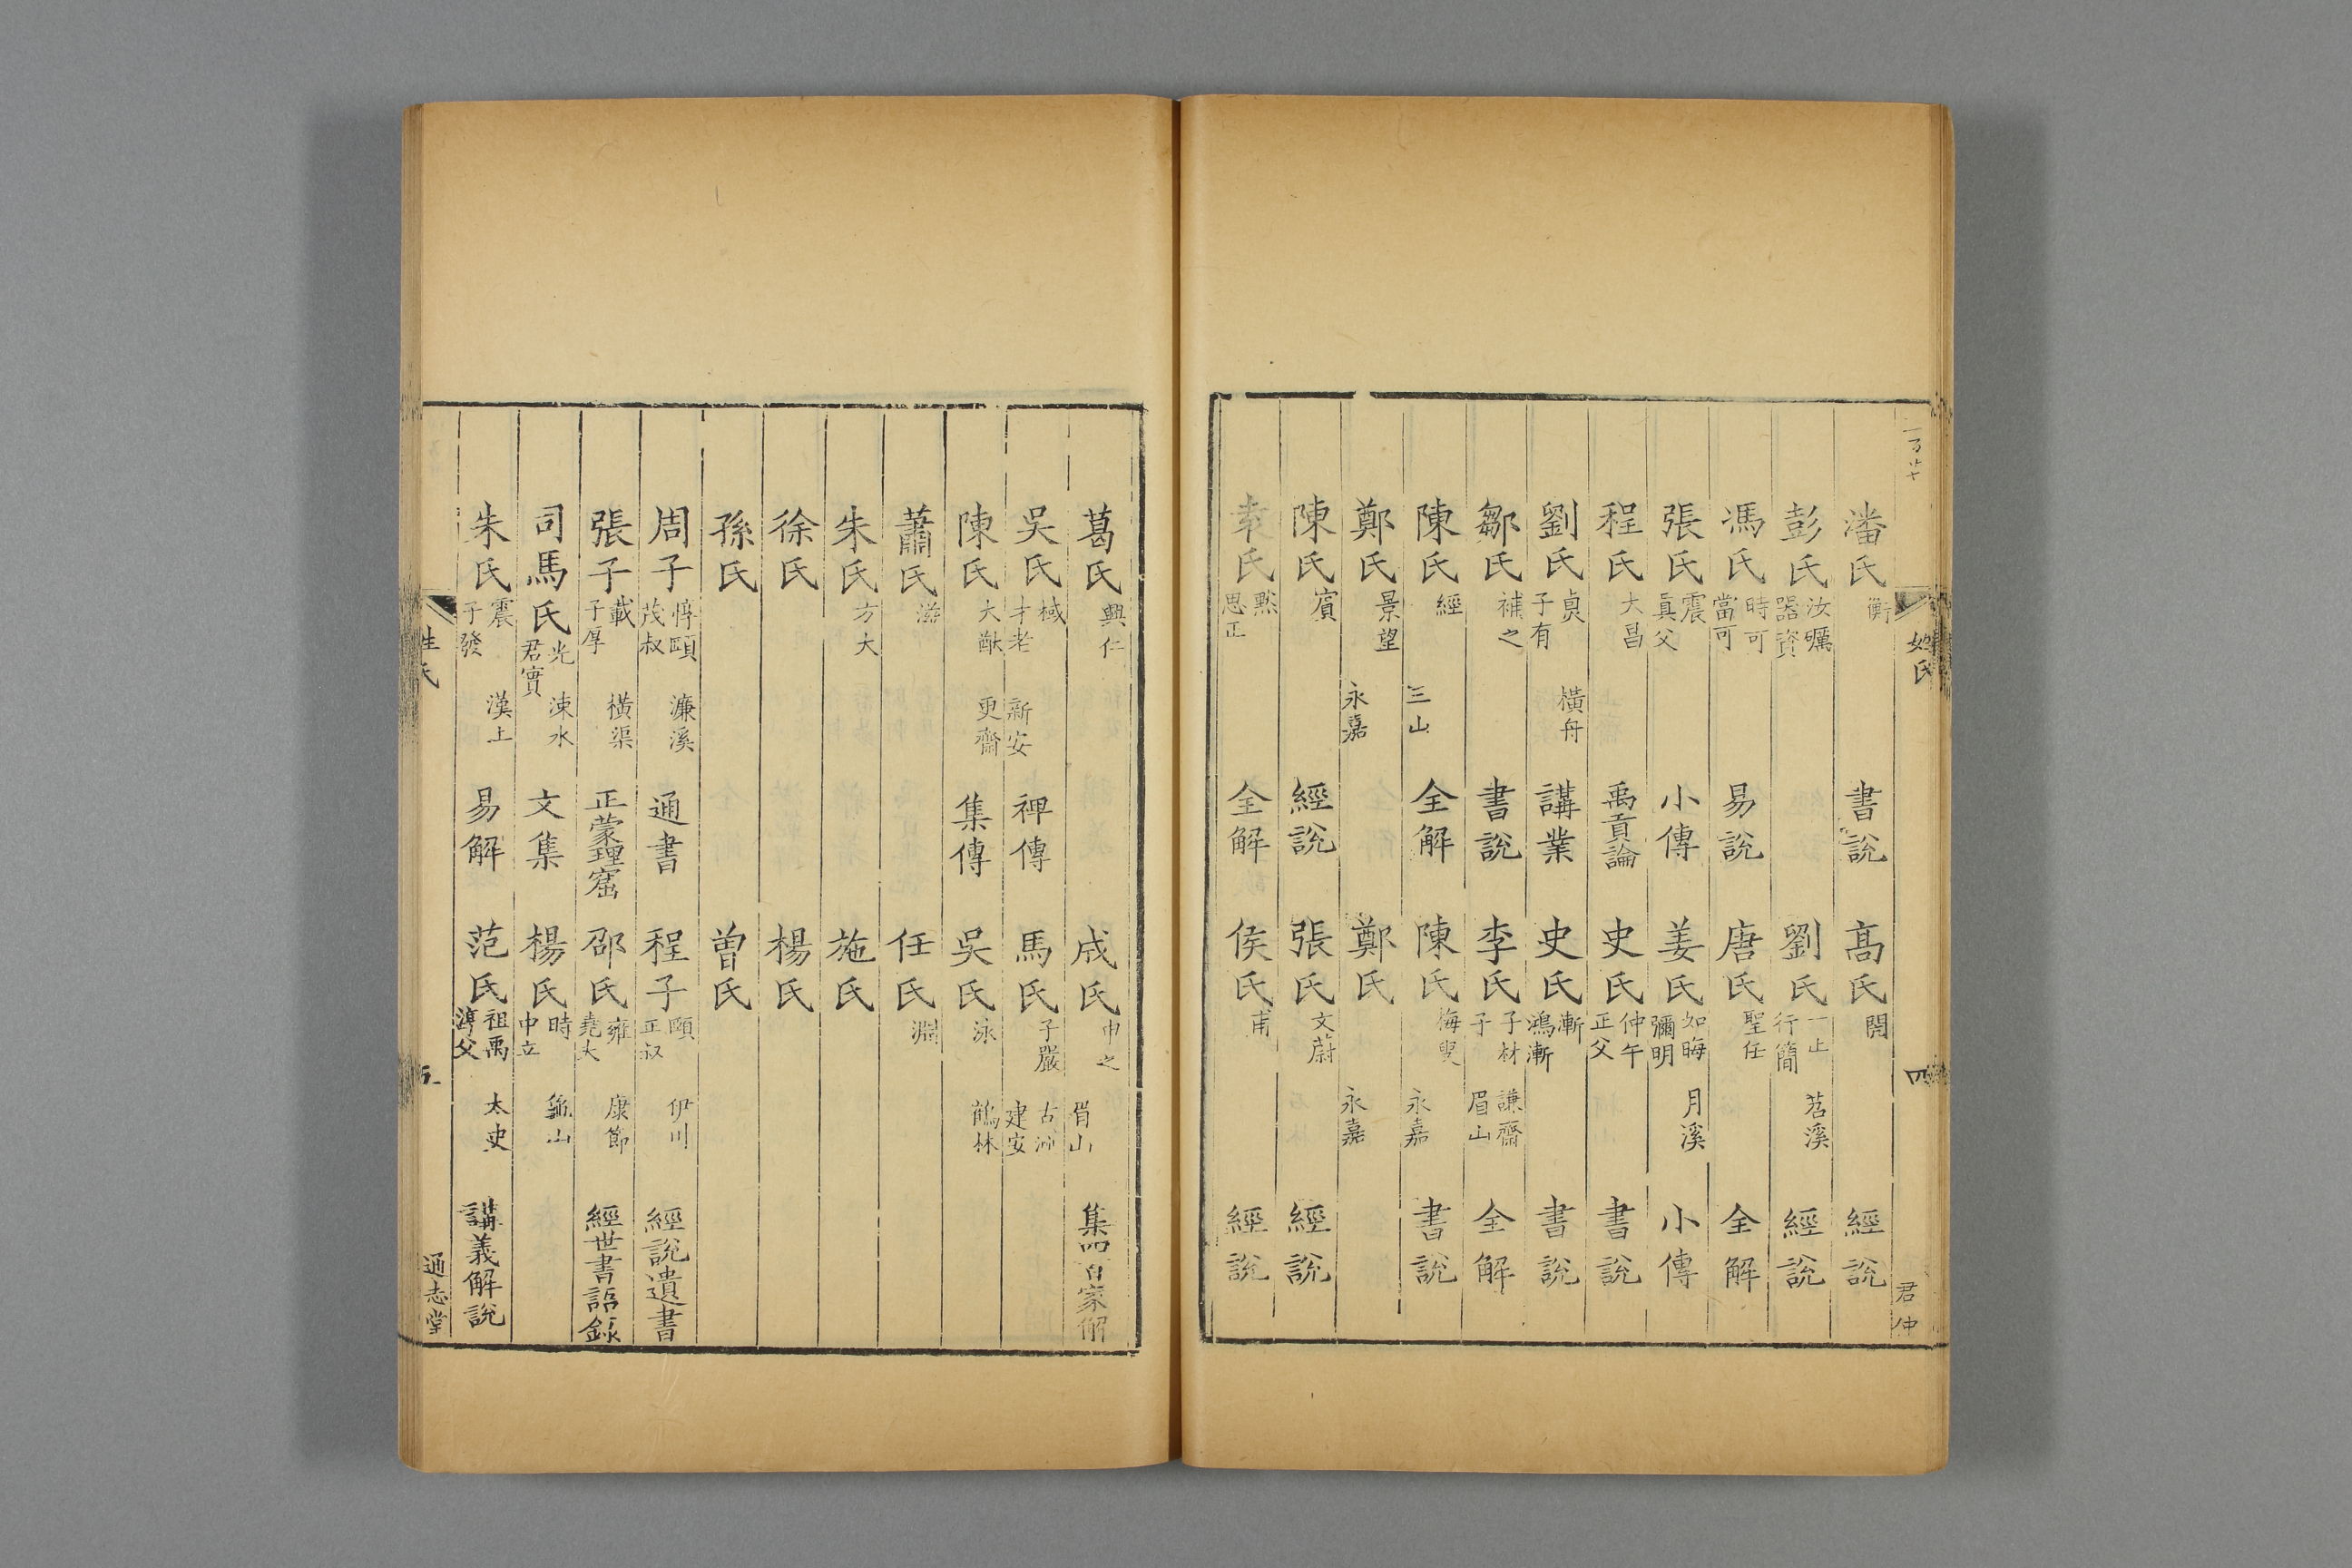 姓氏 四 君仲
潘氏 衡 書說 高氏 閌 經說
彭氏 汝礪 器資 劉氏 一止 行簡 苕溪 經說
馮氏 時可 當可 易說 唐氏 聖任 全解
張氏 震 真父 小傳 姜氏 如晦 彌明 月溪 小傳
程氏 大昌 禹貢論 史氏 仲午 正父 書說
劉氏 貞 子有 橫舟 講業 史氏 漸 鴻漸 書說
鄒氏 補之 書說 李氏 子材 子 謙齋 眉山 全解
陳氏 經 三山 全解 陳氏 梅叟 永嘉 書說
鄭氏 景望 永嘉 鄭氏 永嘉
陳氏 賔 經說 張氏 文蔚 經說
袁氏 黙 思正 全解 侯氏 甫 經說
葛氏 興仁 成氏 申之 眉山 集四百家解
吳氏 棫 才老 新安 裨傳 馬氏 子嚴 古洲 建安
陳氏 大猷 更齋 集傳 吳氏 泳 鶴林
蕭氏 滋 任氏 淵
朱氏 方大 施氏
徐氏 楊氏
孫氏 曾氏
周子 惇頤 茂叔 濂溪 通書 程子 頤 正叔 伊川 經說遺書
張子 載 子厚 橫渠 正蒙理窟 邵氏 雍 堯夫 康節 經世書語録
司馬氏 光 君實 涑水 文集 楊氏 時 中立 龜山
朱氏 震 子發 漢上 易解 范氏 祖禹 淳父 太史 講義解說
姓氏 五 通志堂